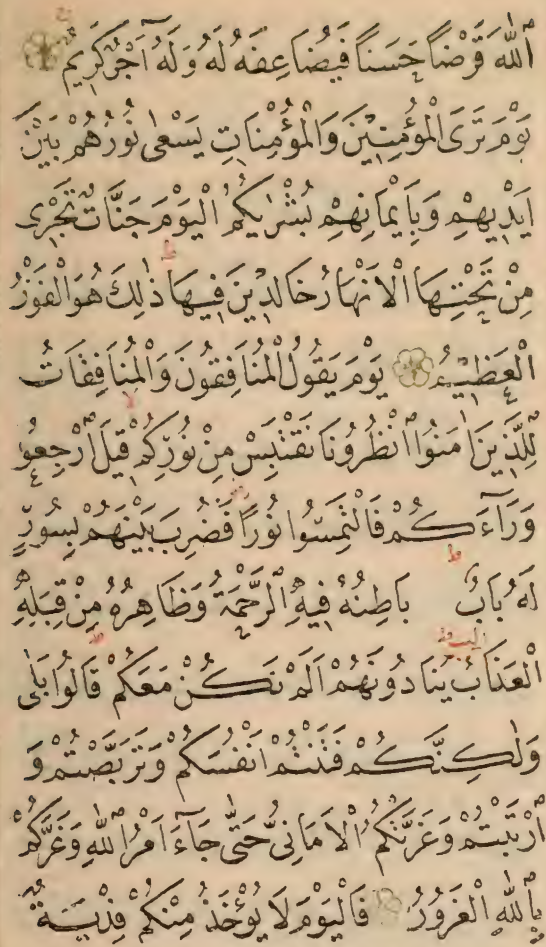 اَللّٰهَ قَرْضًا حَسَنًا فَيُضَاعِفَهُ لَهُ وَلَهُ اَجْرٌ كَرِيمٌ
يَوْمَ تَرَى الْمُؤْمِنِينَ وَالْمُؤْمِنَاتِ يَسْعٰى نُورُهُمْ بَيْنَ
اَيْدِيهِمْ وَبِاَيْمَانِهِمْ بُشْرٰيكُمُ الْيَوْمَ جَنَّاتٌ تَجْرِى
مِنْ تَحْتِهَا الْاَنْهَارُ خَالِدِينَ فِيهَا ذٰلِكَ هُوَ الْفَوْزُ
الْعَظِيمُ يَوْمَ يَقُولُ الْمُنَافِقُونَ وَالْمُنَافِقَاتُ
لِلَّذِينَ اٰمَنُوا انْظُرُونَا نَقْتَبِسْ مِنْ نُورِكُمْ قِيلَ ارْجِعُوا
وَرَآءَكُمْ فَالْتَمِسُوا نُورًا فَضُرِبَ بَيْنَهُمْ بِسُورٍ
لَهُ بَابٌ بَاطِنُهُ فِيهِ الرَّحْمَةُ وَظَاهِرُهُ مِنْ قِبَلِهِ
الْعَذَابُ يُنَادُونَهُمْ اَلَمْ نَكُنْ مَعَكُمْ قَالُوا بَلٰى
وَلٰكِنَّكُمْ فَتَنْتُمْ اَنْفُسَكُمْ وَتَرَبَّصْتُمْ وَ
ارْتَبْتُمْ وَغَرَّتْكُمُ الْاَمَانِىُّ حَتّٰى جَآءَ اَمْرُ اللّٰهِ وَغَرَّكُمْ
بِاللّٰهِ الْغَرُورُ فَالْيَوْمَ لَا يُؤْخَذُ مِنْكُمْ فِدْيَةٌ